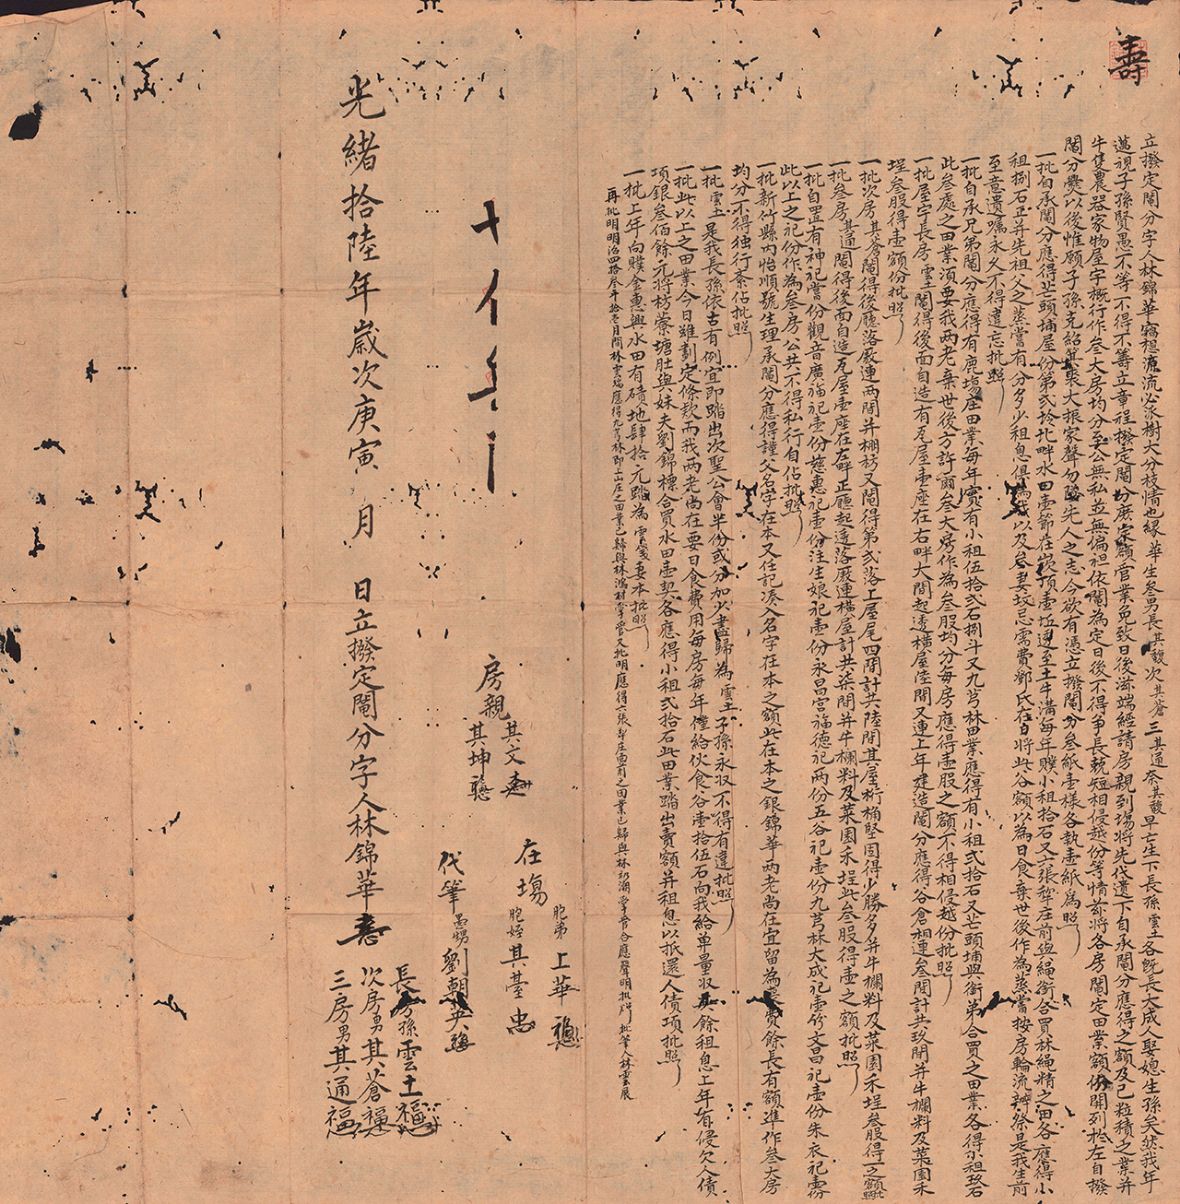 壽
立撥定鬮分字人林錦華竊想源流必派樹大分枝情也緣華生叁男長其馥次其蒼三其通奈其馥早亡庄下長孫雲土各旣長大成人娶媳生孫矣然我年
邁視子孫賢愚不等不得不籌立章程撥定鬮分庶定額管業免致日後滋端經請房親到塲將先代遺下自承鬮分應得之額及己粒積之業并
牛隻農器家物屋宇概行作叁大房均分至公無私並無偏袒依鬮為定日後不得爭長競短相侵越份等情茲將各房鬮定田業額份開列於左自撥
鬮分爨以後惟願子孫克紹其裘大振家聲勿墜先人之志今欲有憑立撥鬮分叁紙壹樣各執壹紙為照
一批自承鬮分應得芒頭埔屋份第弍拾北畔水田壹節在崁頂壹坵透至土牛溝每年贌小租拾石又六張犂庄前與繩衡合買林繩精之田各應得小
租捌石正并先祖父之蒸嘗有分多少租息俱為我以及叁妻坟忌需費鄧氏在日將此谷額以為日食棄世後作為蒸嘗按房輪流辦祭是我生前
至意遺囑永久不得違忘批照
一批自承兄弟鬮分應得有鹿塲庄田業每年實有小租伍拾弍石捌斗又九芎林田業應得有小租弍拾石又芒頭埔與衡弟合買之田業各得小租玖石
此叁處之田業須要我两老棄世後方許爾叁大房作為叁股均分每房應得壹股之額不得相侵越份批照
一批屋宇長房雲土鬮得後面自造有瓦屋壹座在右畔大間起透橫屋陸間又連上年建造鬮分應得谷倉相連叁間計共玖間并牛欄料及菜園禾
埕叁股得壹額份批照
一批次房其蒼鬮得後廳落厫連两間并棚枋又鬮得第弍落上屋尾四間計共陸間其屋桁桷堅固得少勝多并牛欄料及菜園禾埕叁股得一之額批照
一批叁房其通鬮得後面自造瓦屋壹座在左畔正廳起透落厫連橫屋計共柒間并牛欄料及菜園禾埕此叁股得壹之額批照
一批自置有神祀嘗份觀音廣福祀壹份慈惠祀壹份注生娘祀壹份永昌宮福德祀两份五谷祀壹份九芎林大成祀壹份文昌祀壹份朱衣祀壹份
此以上之祀份作為叁房公共不得私行自佔批照
一批新竹縣內怡順號生理承鬮分應得謹父名字在本又任記凑入名字在本之額此在本之銀錦華两老尚在宜留為喪費餘長有額準作叁大房
均分不得独行紊佔批照
一批雲土是我長孫依古有例宜即踏出次聖公會半份或分加少盡歸為雲土子孫永収不得有違批照
一批此以上之田業今日雖劃定條欵而我两老尚在要日食費用每房每年僅給伙食谷壹拾伍石向我給单量収其餘租息上年有侵欠人債
項銀叁佰餘元將枋藔塘肚與妹夫劉錦標合買水田壹契各應得小租弍拾石此田業踏出賣額并租息以抵還人債項批照
一批上年向贌金惠興水田有磧地肆拾元踏為雲箋妻本批照
再批明明治四拾叁年拾壹月間林雲瑞應得九芎林即山庄之田業已歸與林鴻材掌管又批明應得六張犂庄南首之田業已歸與林礽瀚掌管合應聲明批炤 批筆人林雲展
在塲
胞弟上華
胞姪其臺
房親
其文
其坤
代筆愚甥劉朝英
長房孫雲土
次房男其蒼
三房男其通
光緒拾陸年歲次庚寅 月 日立撥定鬮分字人林錦華